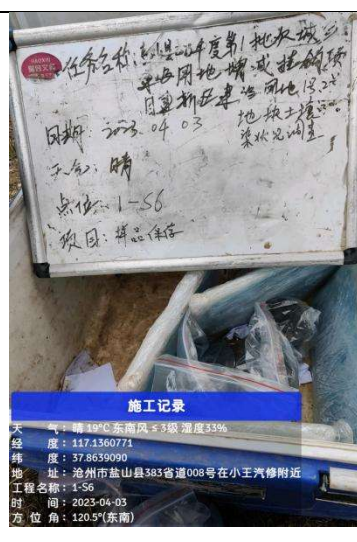 任务名称：盐山县2022年度第1批次城乡
建设用地增减挂钩项
目建新区建设用地13.2#
地块土壤污
染状况调查
日期：2023.04.03
天气：晴
点位：1-S6
项目：样品保存
施工记录
天 气：晴 19℃ 东南风 ≤ 3级 湿度33%
经 度：117.1360771
纬 度：37.8639090
地 址：沧州市盐山县383省道008号在小王汽修附近
工程名称：1-S6
时 间：2023-04-03
方 位 角：120.5°(东南)